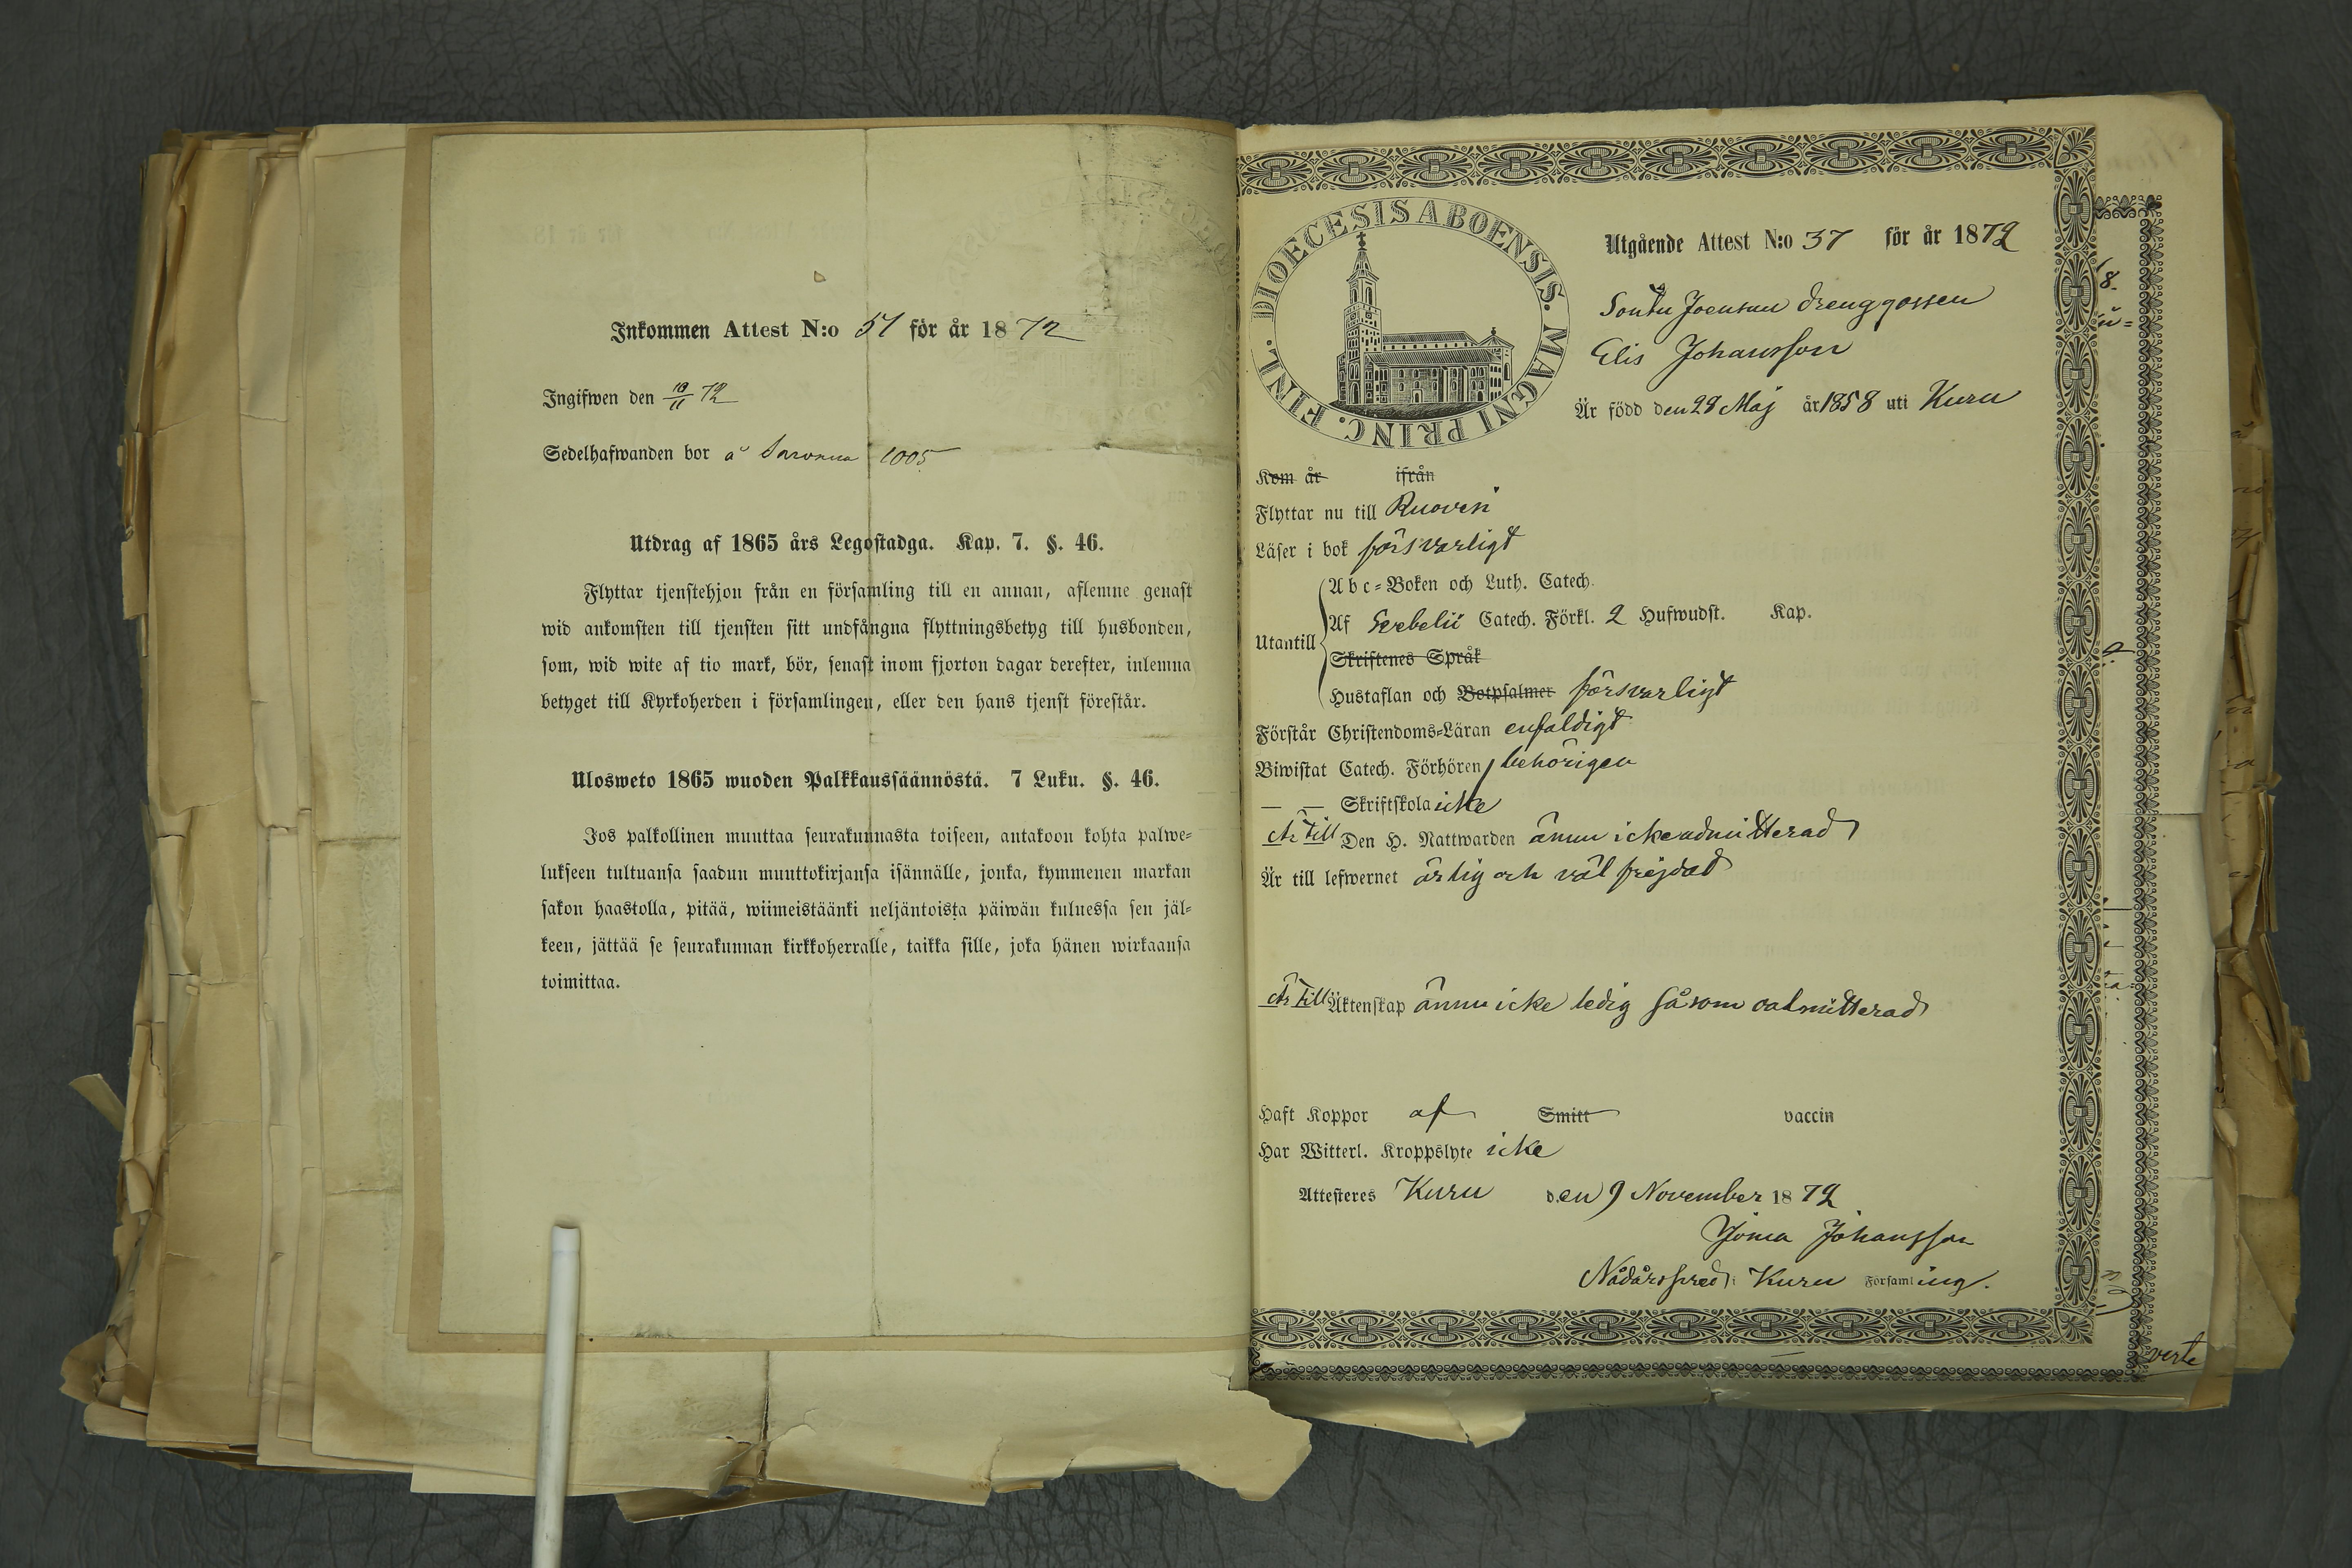 Inkommen Attest N:o 51 för år 1872
Ingifwen den 18/11 72
Sedelhafwanden bor å 1005
Utdrag af 1865 års Legostadga. Kap. 7. §. 46.
Flyttar tjenstehjon från en församling till en annan, aflemne genast
wid ankomsten till tjensten sitt undfångna flyttningsbetyg till husbonden,
som, wid wite af tio mark, bör, senast inom fjorton dagar derefter, inlemna
betyget till Kyrkoherden i församlingen, eller den hans tjenst förestår.
Ulosweto 1865 wuoden Palkkaussäännöstä. 7 Luku. §. 46.
Jos palkollinen muuttaa seurakunnasta toiseen, antakoon kohta palwe-
lukseen tultuansa saadun muuttokirjansa isännälle, jonka, kymmenen markan
sakon haastolla, pitää, wiimeistäänki neljäntoista päiwän kuluessa sen jäl-
keen, jättää se seurakunnan kirkkoherralle, taikka sille, joka hänen wirkaansa
toimittaa.
DIOECESIS ABOENSIS. MAGNI PRINC. FINL.
Utgående Attest N:o 37 för år 1872
drenggossen
Elis Johansson
Är född den 28 Maj år 1858 uti Kuru
Kom år ifrån
Flyttar nu till Ruovesi
Läser i bok försvarligt
Utantill
Abc-Boken och Luth. Catech.
Af Svebelii Catech. Förkl. 2 Hufwudst. Kap.
Skriftenes Språk
Hustaflan och Botpsalmer försvarligt
Förstår Christendoms-Läran enfaldigt
Biwistat Catech. Förhören behörigen
— — Skriftskola icke
Är till Den H. Nattwarden ännu icke admitterad
Är till lefwernet ärlig och väl frejdad
Är till Äktenskap ännu icke ledig såsom oadmitterad
Haft Koppor af Smitt vaccin
Har Witterl. Kroppslyte icke
Attesteres Kuru den 9 November 1872
Johansson
Nådårspred. i Kuru Församling.
verte